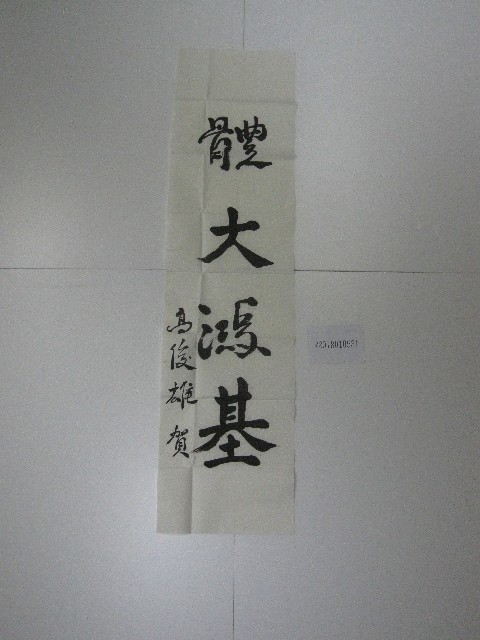 體大鴻基
高俊雄賀